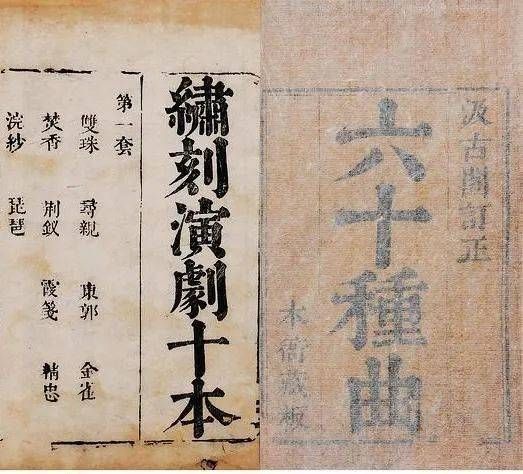 繡刻演劇十本
第一套
雙珠 尋親 東郭 金雀
焚香 荆釵 霞箋 精忠
浣紗 琵琶
汲古閣訂正
六十種曲
本衙藏板